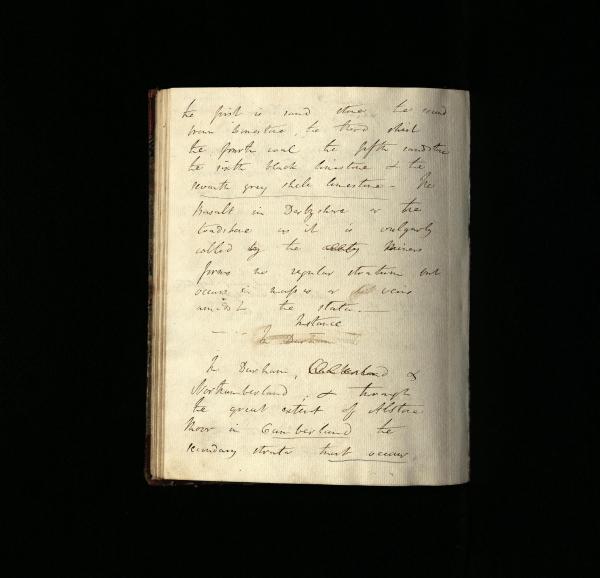 the first is sand stone, the second
brown limestone, the third shist
the fourth coal the fifth sandstone
the sixth black limestone & the
seventh grey shell limestone - The
Basalt in Derbyshire or the
toadstone as it is vulgarly
called by the Miners
forms no regular stratum but
occurs in masses or veins
amidst the strata. —
Instance
In Durham
In Durham, & 
Northumberland, & through
the great extent of Alston
Moor in Cumberland the
secondary strata that occur